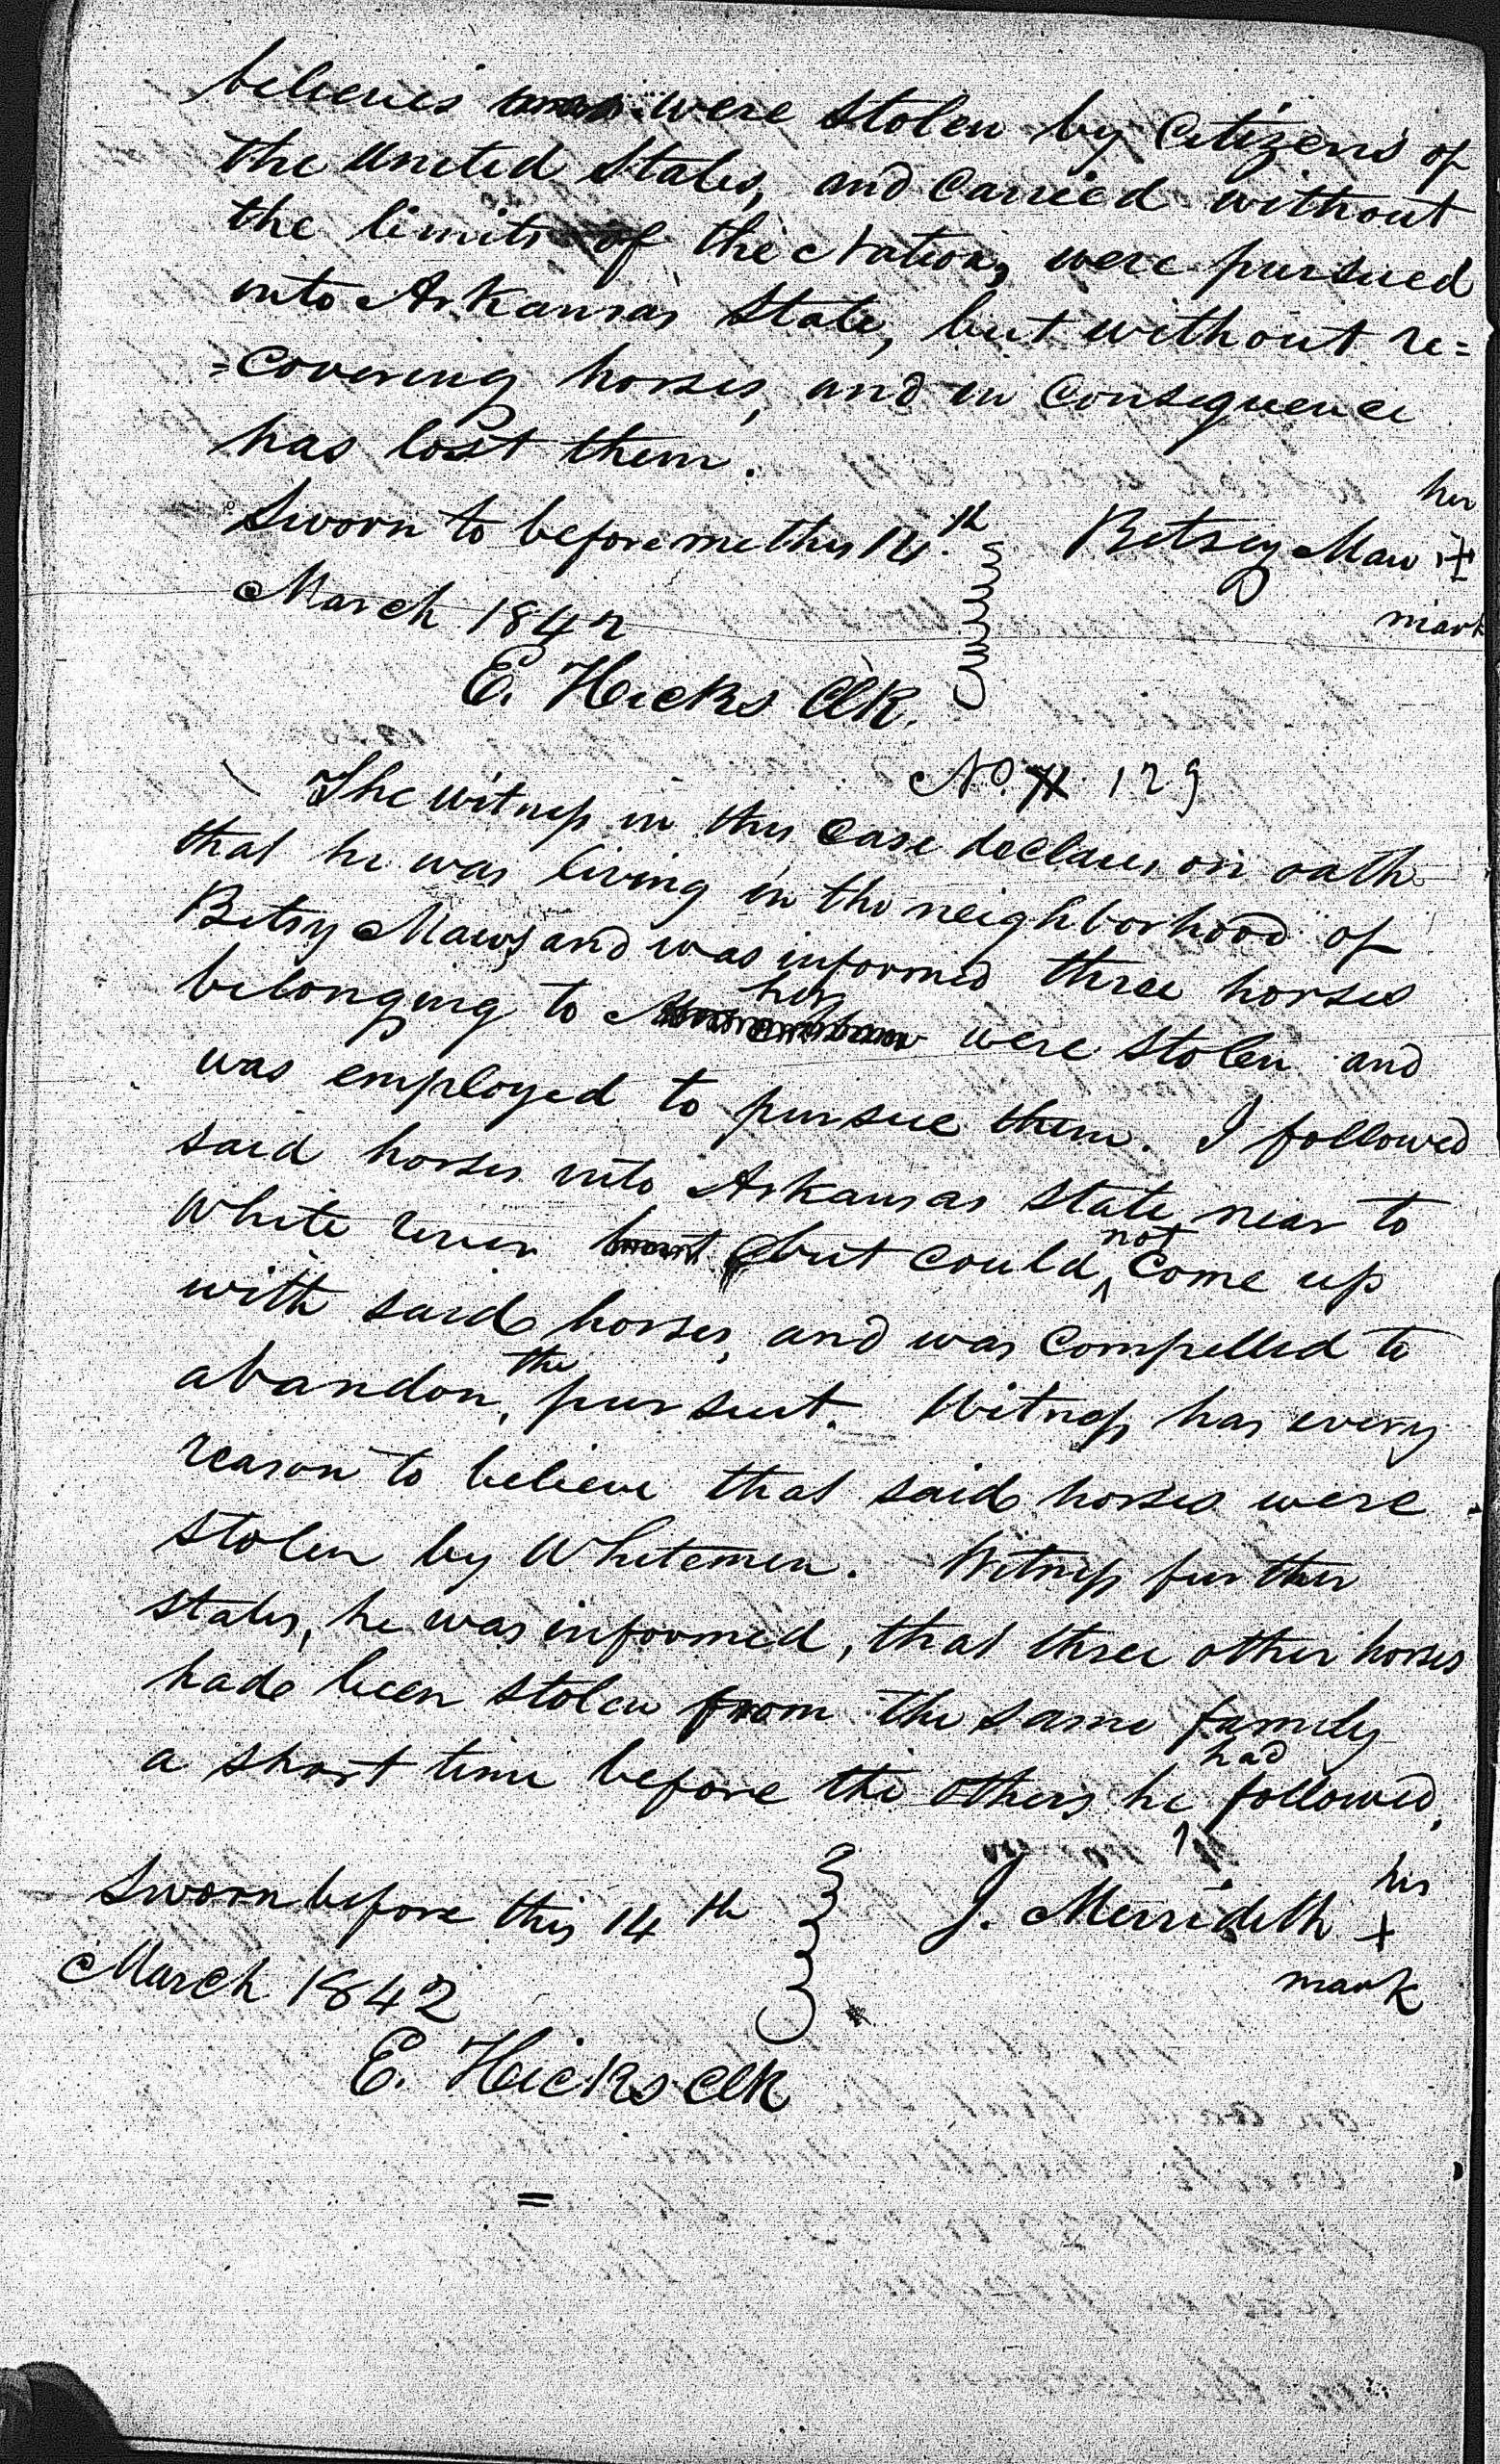 believes were stolen by Citizens of
the United States, and Carried without
the limits of the Nation, were pursued
into Arkansas State, but without re=
=covering horses, and in Consequence
has lost them.
her
Sworn to before me this 14th Betsey Maw +
mark
March 1842
E. Hicks Clk.
No. 129
The witness in this Case declares on oath
that he was living in the neighborhood of
Betsy Maws, and was informed three horses
belonging to her were stolen and
was employed to pursue them. I followed
said horses into Arkansas State near to
White river but could not Come up
with said horses, and was Compelled to
abandon, the pursuit. Witness has every
reason to believe that said horses were
stolen by Whitemen. Witness further
states, he was informed, that three other horses
had been stolen from the same family
a short time before the others he had followed.
his
Sworn before this 14th J. Merridith +
mark
March 1842
E. Hicks Clk
=